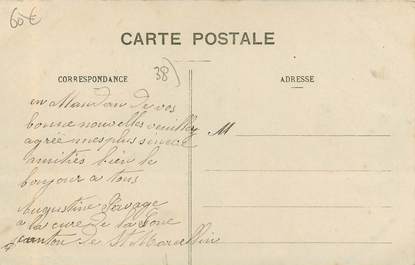 60€
CARTE POSTALE
38)
CORRESPONDANCE
ADRESSE
en Attandan de vos
bonne nouvelles veuillez
agréé mes plus sincere
amitiés bien le
bonjour a tous
M
Augustine
a la cure de la Sone
canton de St Marcellin